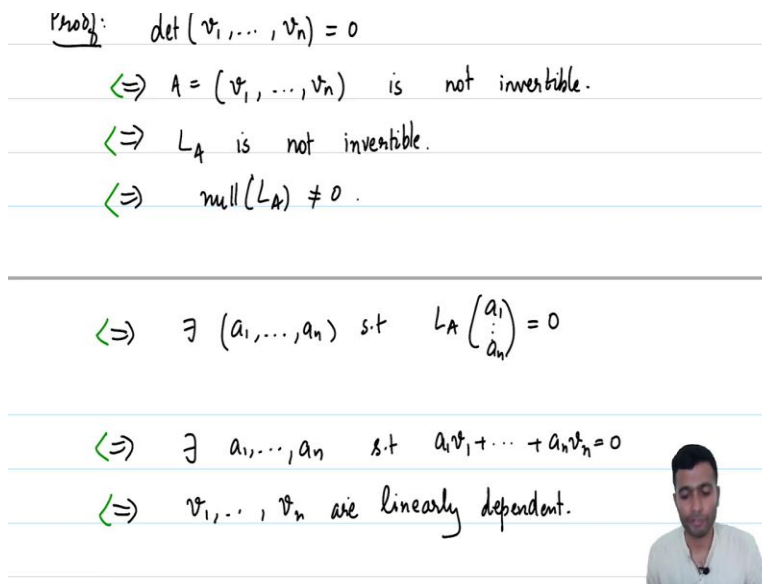 Proof: det(v₁, ..., vₙ) = 0
<=> A = (v₁, ..., vₙ) is not invertible.
<=> L_A is not invertible.
<=> null(L_A) ≠ 0.
<=> ∃ (a₁, ..., aₙ) s.t L_A (a₁ ⋮ aₙ) = 0
<=> ∃ a₁, ..., aₙ s.t a₁v₁ + ... + aₙvₙ = 0
<=> v₁, .., vₙ are linearly dependent.